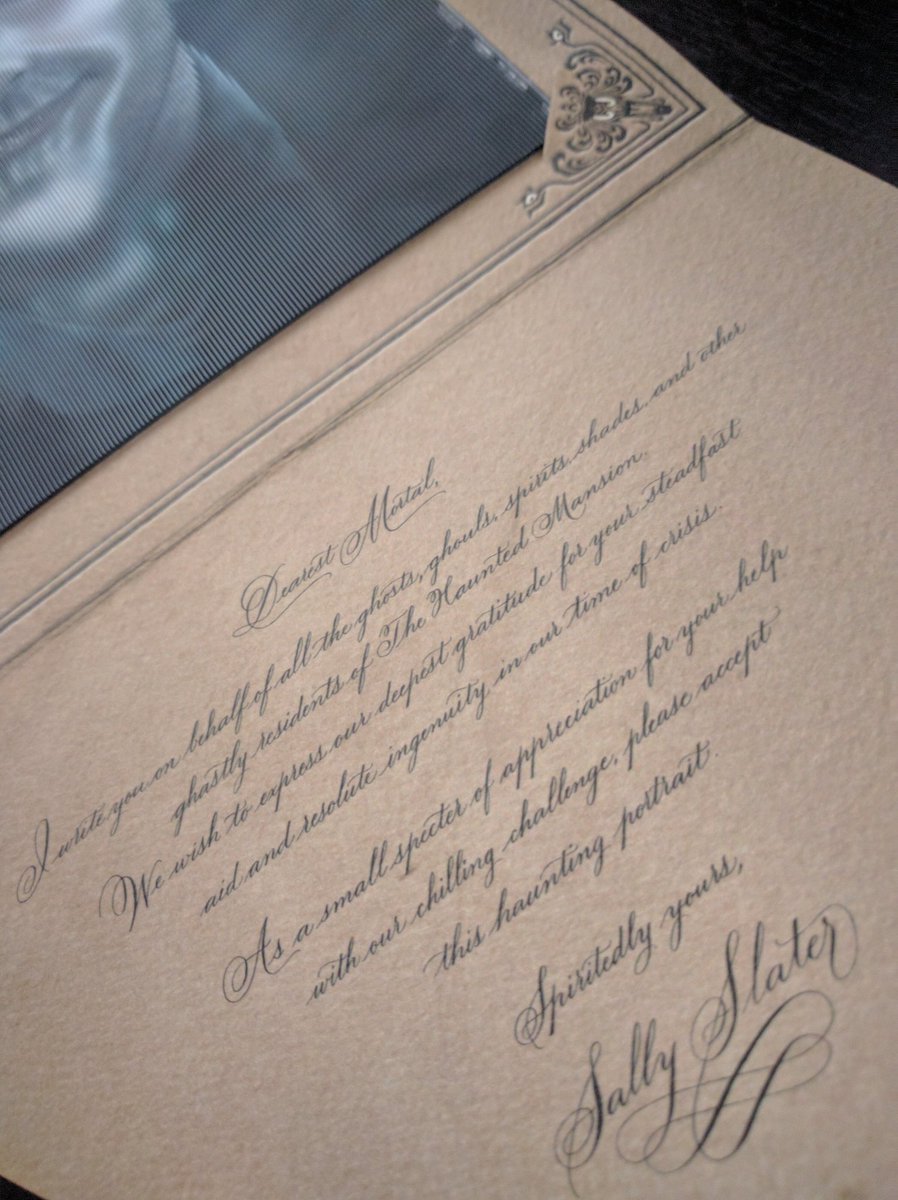 Dearest Mortal,
I write you on behalf of all the ghosts, ghouls, spirits, shades, and other
ghastly residents of The Haunted Mansion.
We wish to express our deepest gratitude for your steadfast
aid and resolute ingenuity in our time of crisis.
As a small specter of appreciation for your help
with our chilling challenge, please accept
this haunting portrait.
Spiritedly yours,
Sally Slater